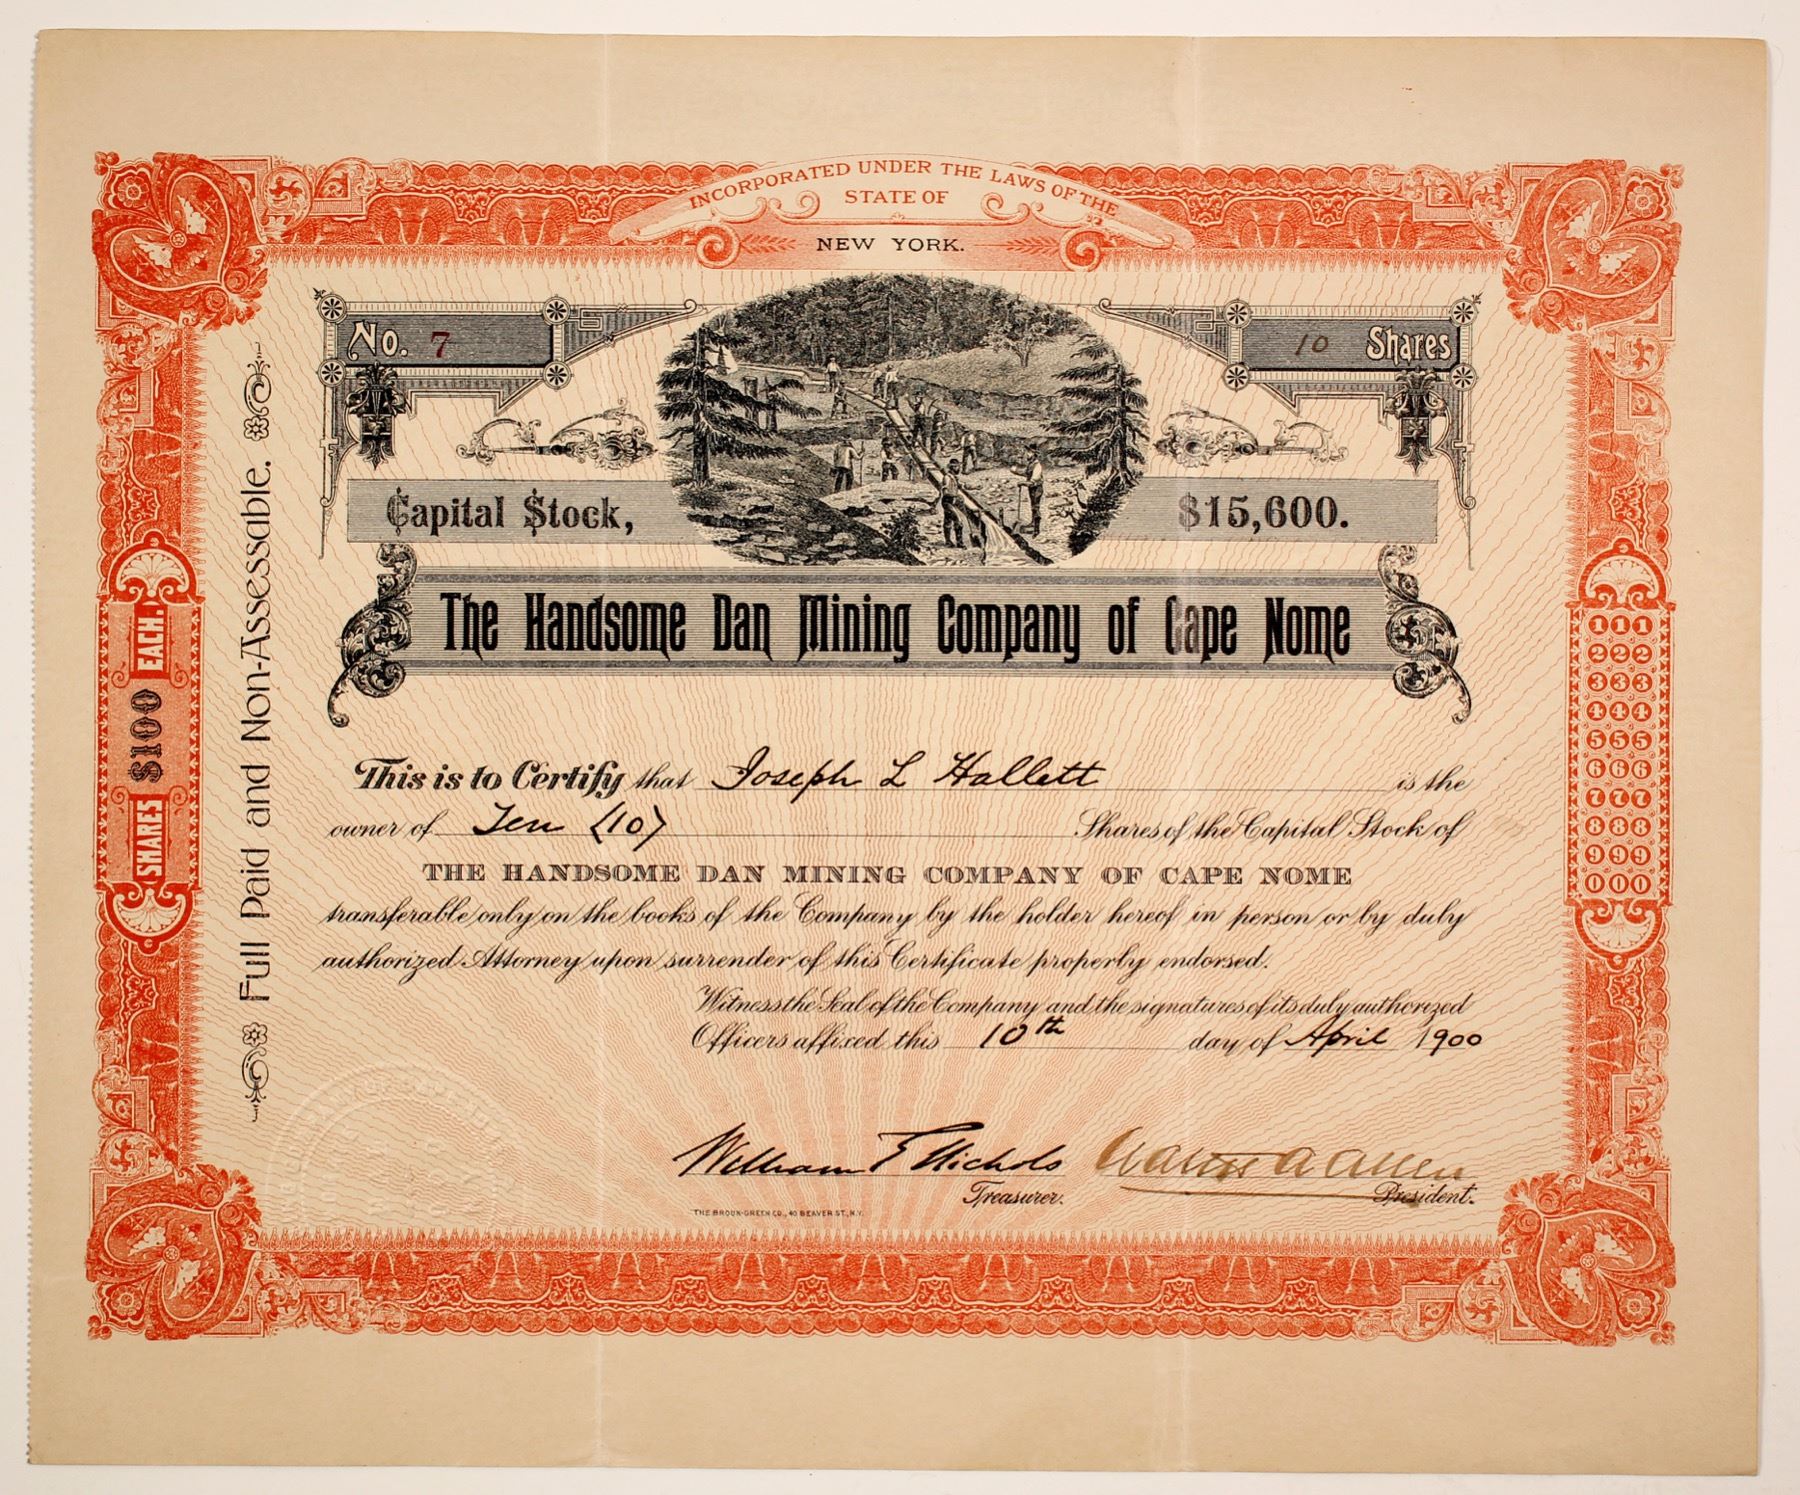 INCORPORATED UNDER THE LAWS OF THE
STATE OF
NEW YORK.
No. 7
10 Shares
Capital Stock,
$15,600.
The Handsome Dan Mining Company of Cape Nome
Full Paid and Non-Assessable.
SHARES $100 EACH.
111
222
333
444
555
666
777
888
999
000
This is to Certify that Joseph L Hallett is the
owner of Ten (10) Shares of the Capital Stock of
THE HANDSOME DAN MINING COMPANY OF CAPE NOME
transferable only on the books of the Company by the holder hereof in person or by duly
authorized Attorney upon surrender of this Certificate properly endorsed.
Witness the Seal of the Company and the signatures of its duly authorized
Officers affixed this 10th day of April 1900
William E Nichols
Treasurer.
Walter A Allen
President.
THE BROUN-GREEN CO., 40 BEAVER ST., N.Y.